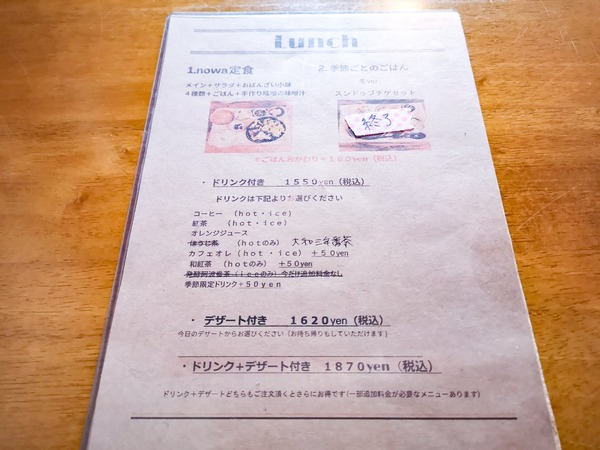 Lunch
1.nowa定食
2.季節ごとのごはん
冬ver
メイン+サラダ+おばんざい小鉢
4種類+ごはん+手作り味噌の味噌汁
スンドゥブチゲセット
終了
+ごはんおかわり+160yen(税込)
・ドリンク付き 1550yen(税込)
ドリンクは下記よりお選びください
コーヒー (hot・ice)
紅茶 (hot・ice)
オレンジジュース
ほうじ茶 (hotのみ) 大和三年番茶
カフェオレ(hot・ice) +50yen
和紅茶 (hotのみ) +50yen
発酵阿波番茶(iceのみ)今だけ追加料金なし
季節限定ドリンク+50yen
・デザート付き 1620yen(税込)
今日のデザートからお選びください(お持ち帰りもしていただけます)
・ドリンク+デザート付き 1870yen(税込)
ドリンク+デザートどちらもご注文頂くとさらにお得です(一部追加料金が必要なメニューあります)